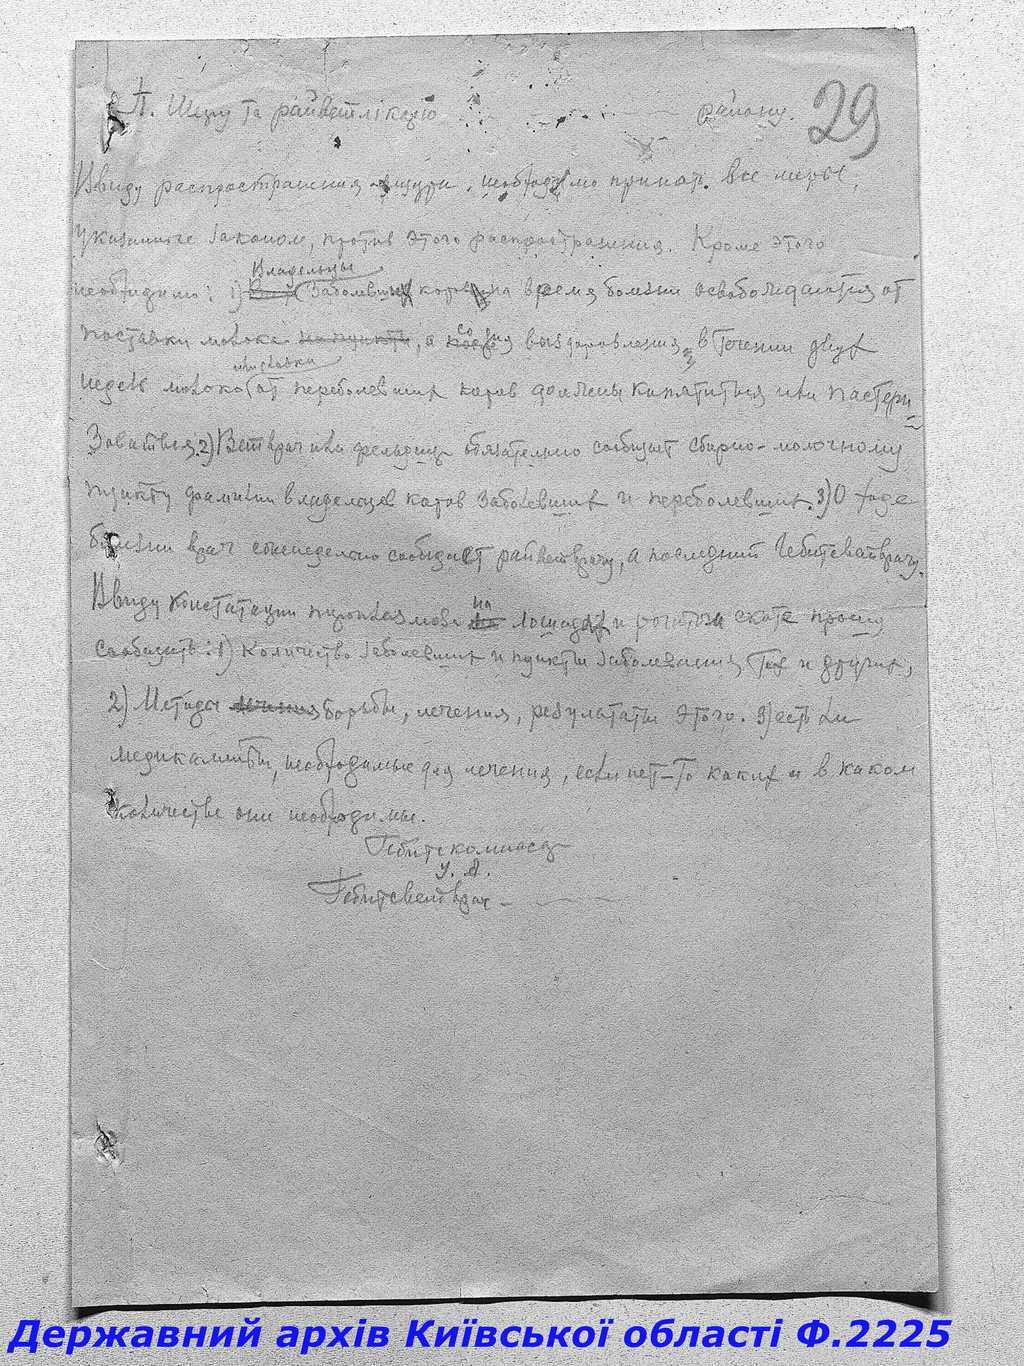 П. Шефу та райветлікарю района.
29
Ввиду распространения ящура, необходимо принять все меры,
указанные законом, против этого распространения. Кроме этого
Владельцы
необходимо: 1) заболевших коров на время болезни освобождаются от
поставки молока на пункты, а со дня выздоровления, в течении двух
недель молоко от переболевших коров должны кипятиться или пастери
зоваться. 2) Ветврач или фельдшер обязательно сообщает сборно-молочному
пункту фамилии владельцев коров заболевших и переболевших. 3) О ходе
болезни врач еженедельно сообщает райветврачу, а последний Гебитсветврачу.
Ввиду констатации пироплазмоза на лошадях и рогатом скоте прошу
сообщить: 1) Количество заболевших и пункты заболевания тех и других,
2) Методы лечения борьбы, лечения, результаты этого. 3) есть ли
медикаменты, необходимые для лечения, если нет-то каких и в каком
количестве они необходимы.
Гебитскомиссар
У. А.
Гебитсветврач -
Державний архів Київської області Ф.2225